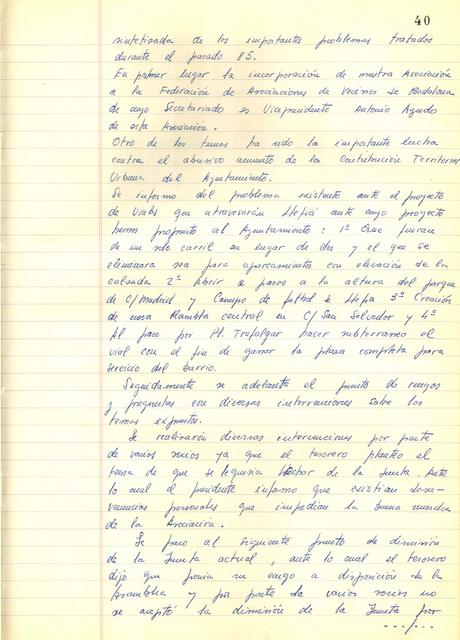 40
sintetizada de los importantes problemas tratados
durante el pasado 85.
En primer lugar la incorporación de nuestra Asociación
a la Federación de Asociaciones de Vecinos de Badalona
de cuyo Secretariado es Vicepresidente Antonio Agudo
de esta Asociación.
Otro de los temas ha sido la importante lucha
contra el abusivo aumento de la Contribución Territorial
Urbana del Ayuntamiento.
Se informo del problema existente ante el proyecto
de Vials que atravesarán Llefiá ante cuyo proyecto
hemos propuesto al Ayuntamiento: 1º Que fueran
de un solo carril en lugar de dos y el que se
eliminara sea para aparcamientos con elevación de la
calzada 2º Abrir a pasos a la altura del parque
de C/Madrid y Campo de futbol de Llefia 3º Creación
de una Rambla central en C/ San Salvador y 4º
Al paso por Pl. Trafalgar hacer subterraneo el
vial con el fin de ganar la plaza completa para
servicio del barrio.
Seguidamente se adelanto el punto de ruegos
y preguntas con diversas intervenciones sobre los
temas expuestos.
Se realizarón diversas intervenciones por parte
de varios socios ya que el tesorero planteo el
tema de que se leguesia Hectar de la Junta. Ante
lo cual el presidente informo que existian desa-
venencias personales que impedian la buena marcha
de la Asociación.
Se paso al siguiente punto de dimisión
de la Junta actual, ante lo cual el tesorero
dijo que ponia su cargo a disposición de la
Asamblea y por parte de varios socios no
se aceptó la dimisión de la Junta por
...../...